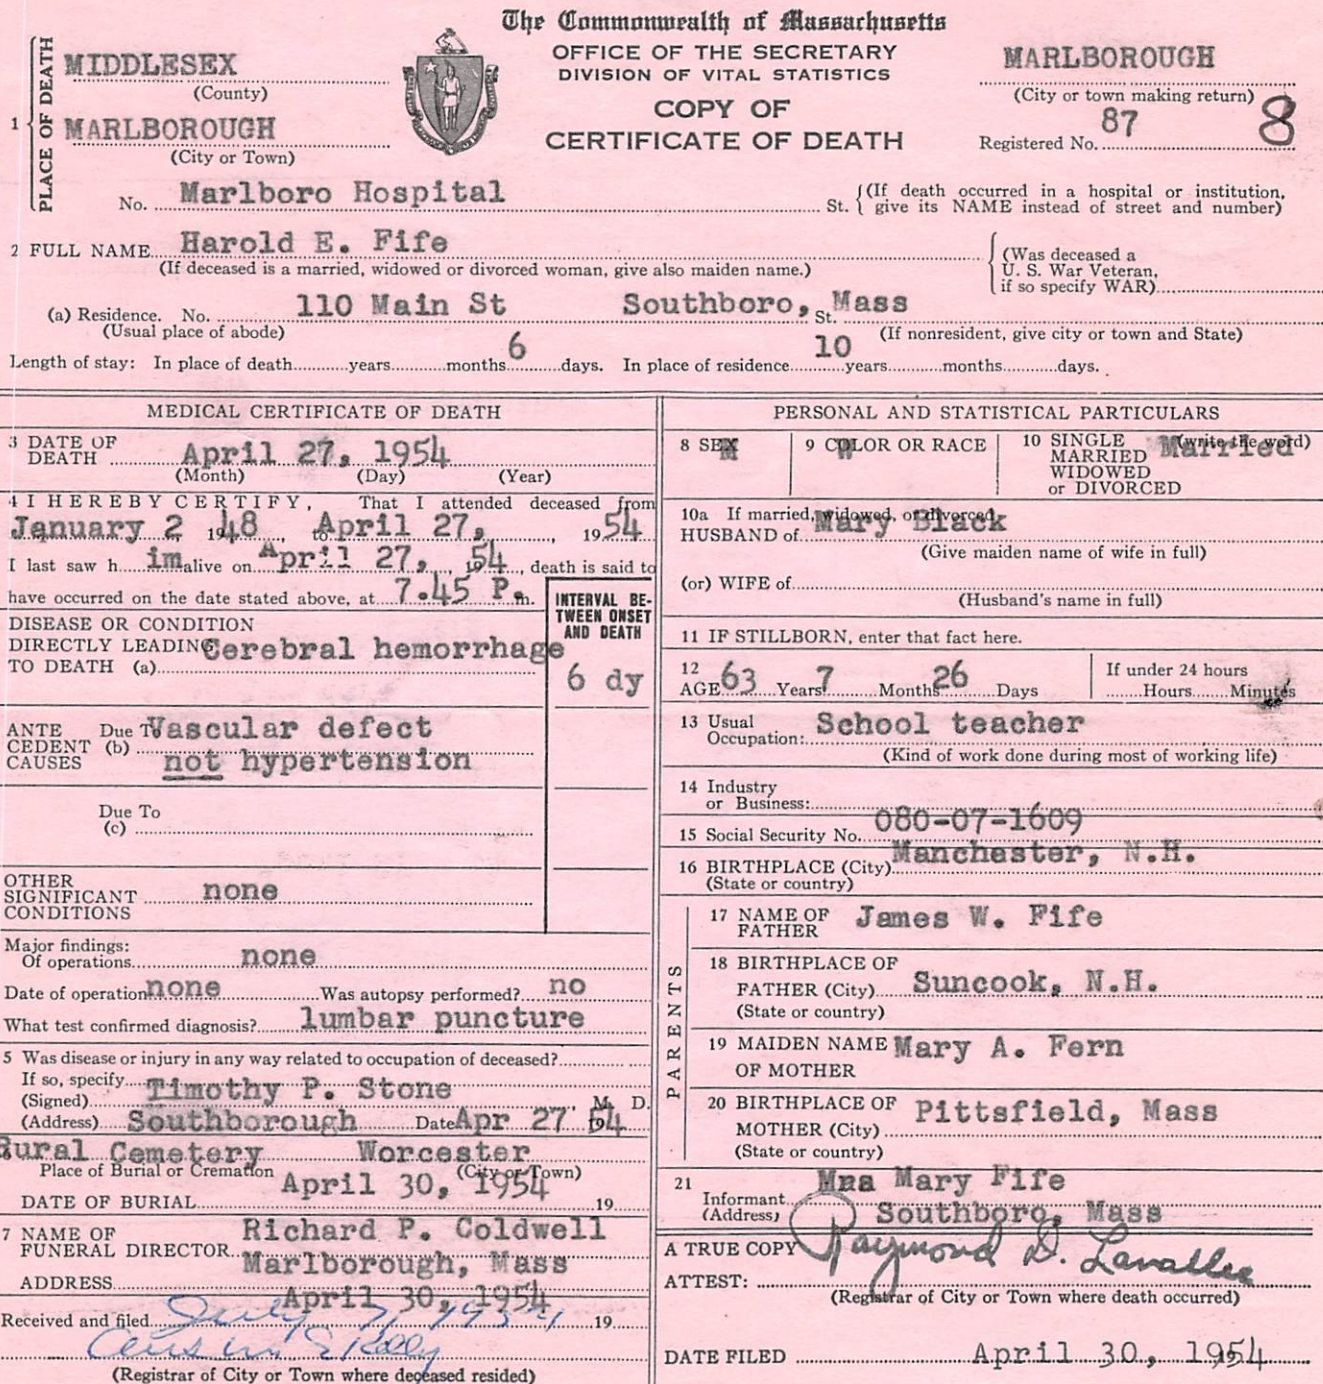 The Commonwealth of Massachusetts
OFFICE OF THE SECRETARY
DIVISION OF VITAL STATISTICS
COPY OF
CERTIFICATE OF DEATH
1 PLACE OF DEATH
MIDDLESEX
(County)
MARLBOROUGH
(City or Town)
MARLBOROUGH
(City or town making return)
Registered No. 87 8
No. Marlboro Hospital St. (If death occurred in a hospital or institution, give its NAME instead of street and number)
2 FULL NAME Harold E. Fife
(If deceased is a married, widowed or divorced woman, give also maiden name.)
(Was deceased a
U. S. War Veteran,
if so specify WAR)
(a) Residence. No. 110 Main St Southboro, Mass St.
(Usual place of abode) (If nonresident, give city or town and State)
Length of stay: In place of death years months 6 days. In place of residence 10 years months days.
MEDICAL CERTIFICATE OF DEATH
3 DATE OF DEATH April 27, 1954
(Month) (Day) (Year)
4 I HEREBY CERTIFY, That I attended deceased from
January 2 1948, to April 27, 1954
I last saw him alive on April 27, 1954, death is said to
have occurred on the date stated above, at 7.45 P. m.
INTERVAL BETWEEN ONSET AND DEATH
DISEASE OR CONDITION
DIRECTLY LEADING Cerebral hemorrhage
TO DEATH (a) 6 dy
ANTECEDENT CAUSES
Due To Vascular defect
(b) not hypertension
Due To
(c)
OTHER SIGNIFICANT CONDITIONS none
Major findings:
Of operations none
Date of operation none Was autopsy performed? no
What test confirmed diagnosis? lumbar puncture
5 Was disease or injury in any way related to occupation of deceased?
If so, specify
(Signed) Timothy P. Stone M. D.
(Address) Southborough Date Apr 27 1954
Rural Cemetery Worcester
Place of Burial or Cremation (City or Town)
DATE OF BURIAL April 30, 1954 19
7 NAME OF FUNERAL DIRECTOR Richard P. Coldwell
ADDRESS Marlborough, Mass
April 30, 1954
Received and filed July 7, 1954 19
(Registrar of City or Town where deceased resided)
PERSONAL AND STATISTICAL PARTICULARS
8 SEX M 9 COLOR OR RACE W 10 SINGLE MARRIED WIDOWED or DIVORCED (write the word) Married
10a If married, widowed, or divorced
HUSBAND of Mary Black
(Give maiden name of wife in full)
(or) WIFE of
(Husband's name in full)
11 IF STILLBORN, enter that fact here.
12 AGE 63 Years 7 Months 26 Days If under 24 hours Hours Minutes
13 Usual Occupation: School teacher
(Kind of work done during most of working life)
14 Industry or Business:
15 Social Security No. 080-07-1609
16 BIRTHPLACE (City) Manchester, N.H.
(State or country)
PARENTS
17 NAME OF FATHER James W. Fife
18 BIRTHPLACE OF
FATHER (City) Suncook, N.H.
(State or country)
19 MAIDEN NAME OF MOTHER Mary A. Fern
20 BIRTHPLACE OF
MOTHER (City) Pittsfield, Mass
(State or country)
21 Informant Mrs Mary Fife
(Address) Southboro, Mass
A TRUE COPY
ATTEST: Raymond D. Lavallee
(Registrar of City or Town where death occurred)
DATE FILED April 30, 1954